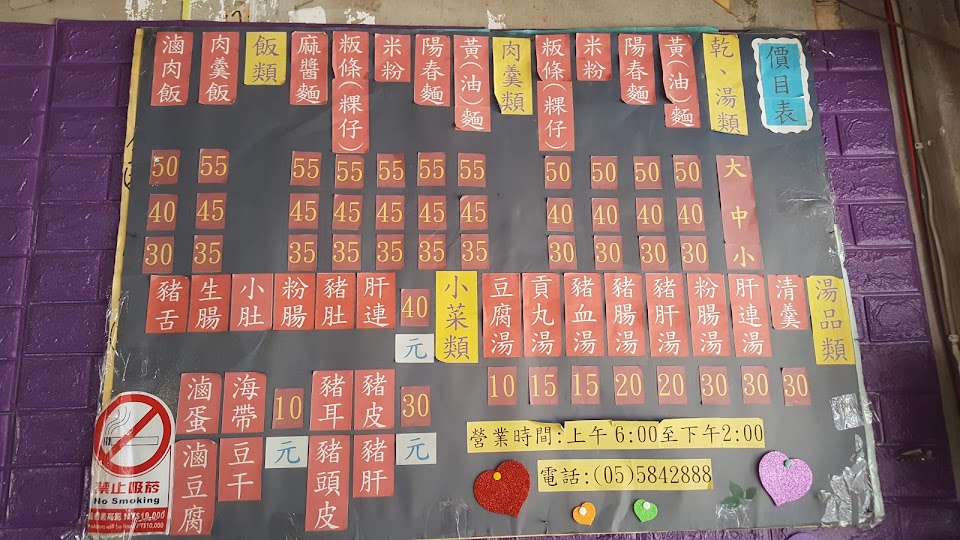 價目表
乾、湯類
大 中 小
黃(油)麵 50 40 30
陽春麵 50 40 30
米粉 50 40 30
粄條(粿仔) 50 40 30
肉羹類
黃(油)麵 55 45 35
陽春麵 55 45 35
米粉 55 45 35
粄條(粿仔) 55 45 35
麻醬麵 55 45 35
飯類
肉羹飯 55 45 35
滷肉飯 50 40 30
湯品類
清羹 30
肝連湯 30
粉腸湯 30
豬肝湯 20
豬腸湯 20
豬血湯 15
貢丸湯 15
豆腐湯 10
小菜類
40元
肝連
豬肚
粉腸
小肚
生腸
豬舌
30元
豬皮
豬肝
豬耳
豬頭皮
10元
海帶
豆干
滷蛋
滷豆腐
營業時間:上午6:00至下午2:00
電話:(05)5842888
禁止吸菸
No Smoking